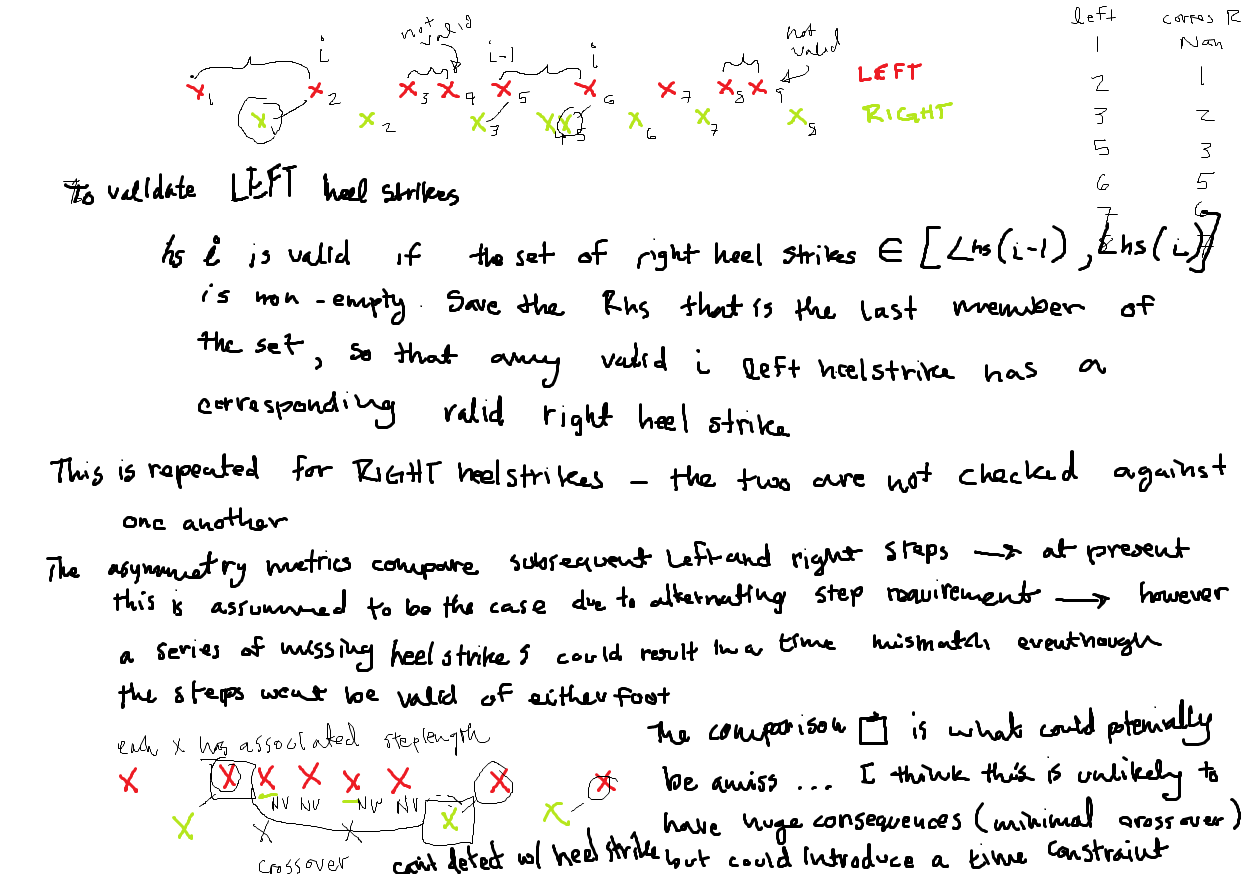 left corres R
1 Nan
2 1
3 2
5 3
6 5
7 6
8 7
i not valid i-1 i not valid
X1 X2 X3 X4 X5 X6 X7 X8 X9 LEFT
X X2 X3 X4 X5 X6 X7 X8 RIGHT
To validate LEFT heel strikes
hs i is valid if the set of right heel strikes ∈ [Lhs(i-1), Lhs(i)]
is non-empty. Save the Rhs that is the last member of
the set, so that any valid i left heelstrike has a
corresponding valid right heel strike
This is repeated for RIGHT heelstrikes – the two are not checked against
one another
The asymmetry metrics compare subsequent left and right steps → at present
this is assumed to be the case due to alternating step requirement → however
a series of missing heelstrikes could result in a time mismatch eventhough
the steps wont be valid of either foot
each X has associated steplength
X X X X X X X X
NV NV NV NV
X X X
X X
crossover cant detect w/ heelstrike
The comparison □ is what could potenially
be amiss ... I think this is unlikely to
have huge consequences (minimal crossover)
but could introduce a time constraint